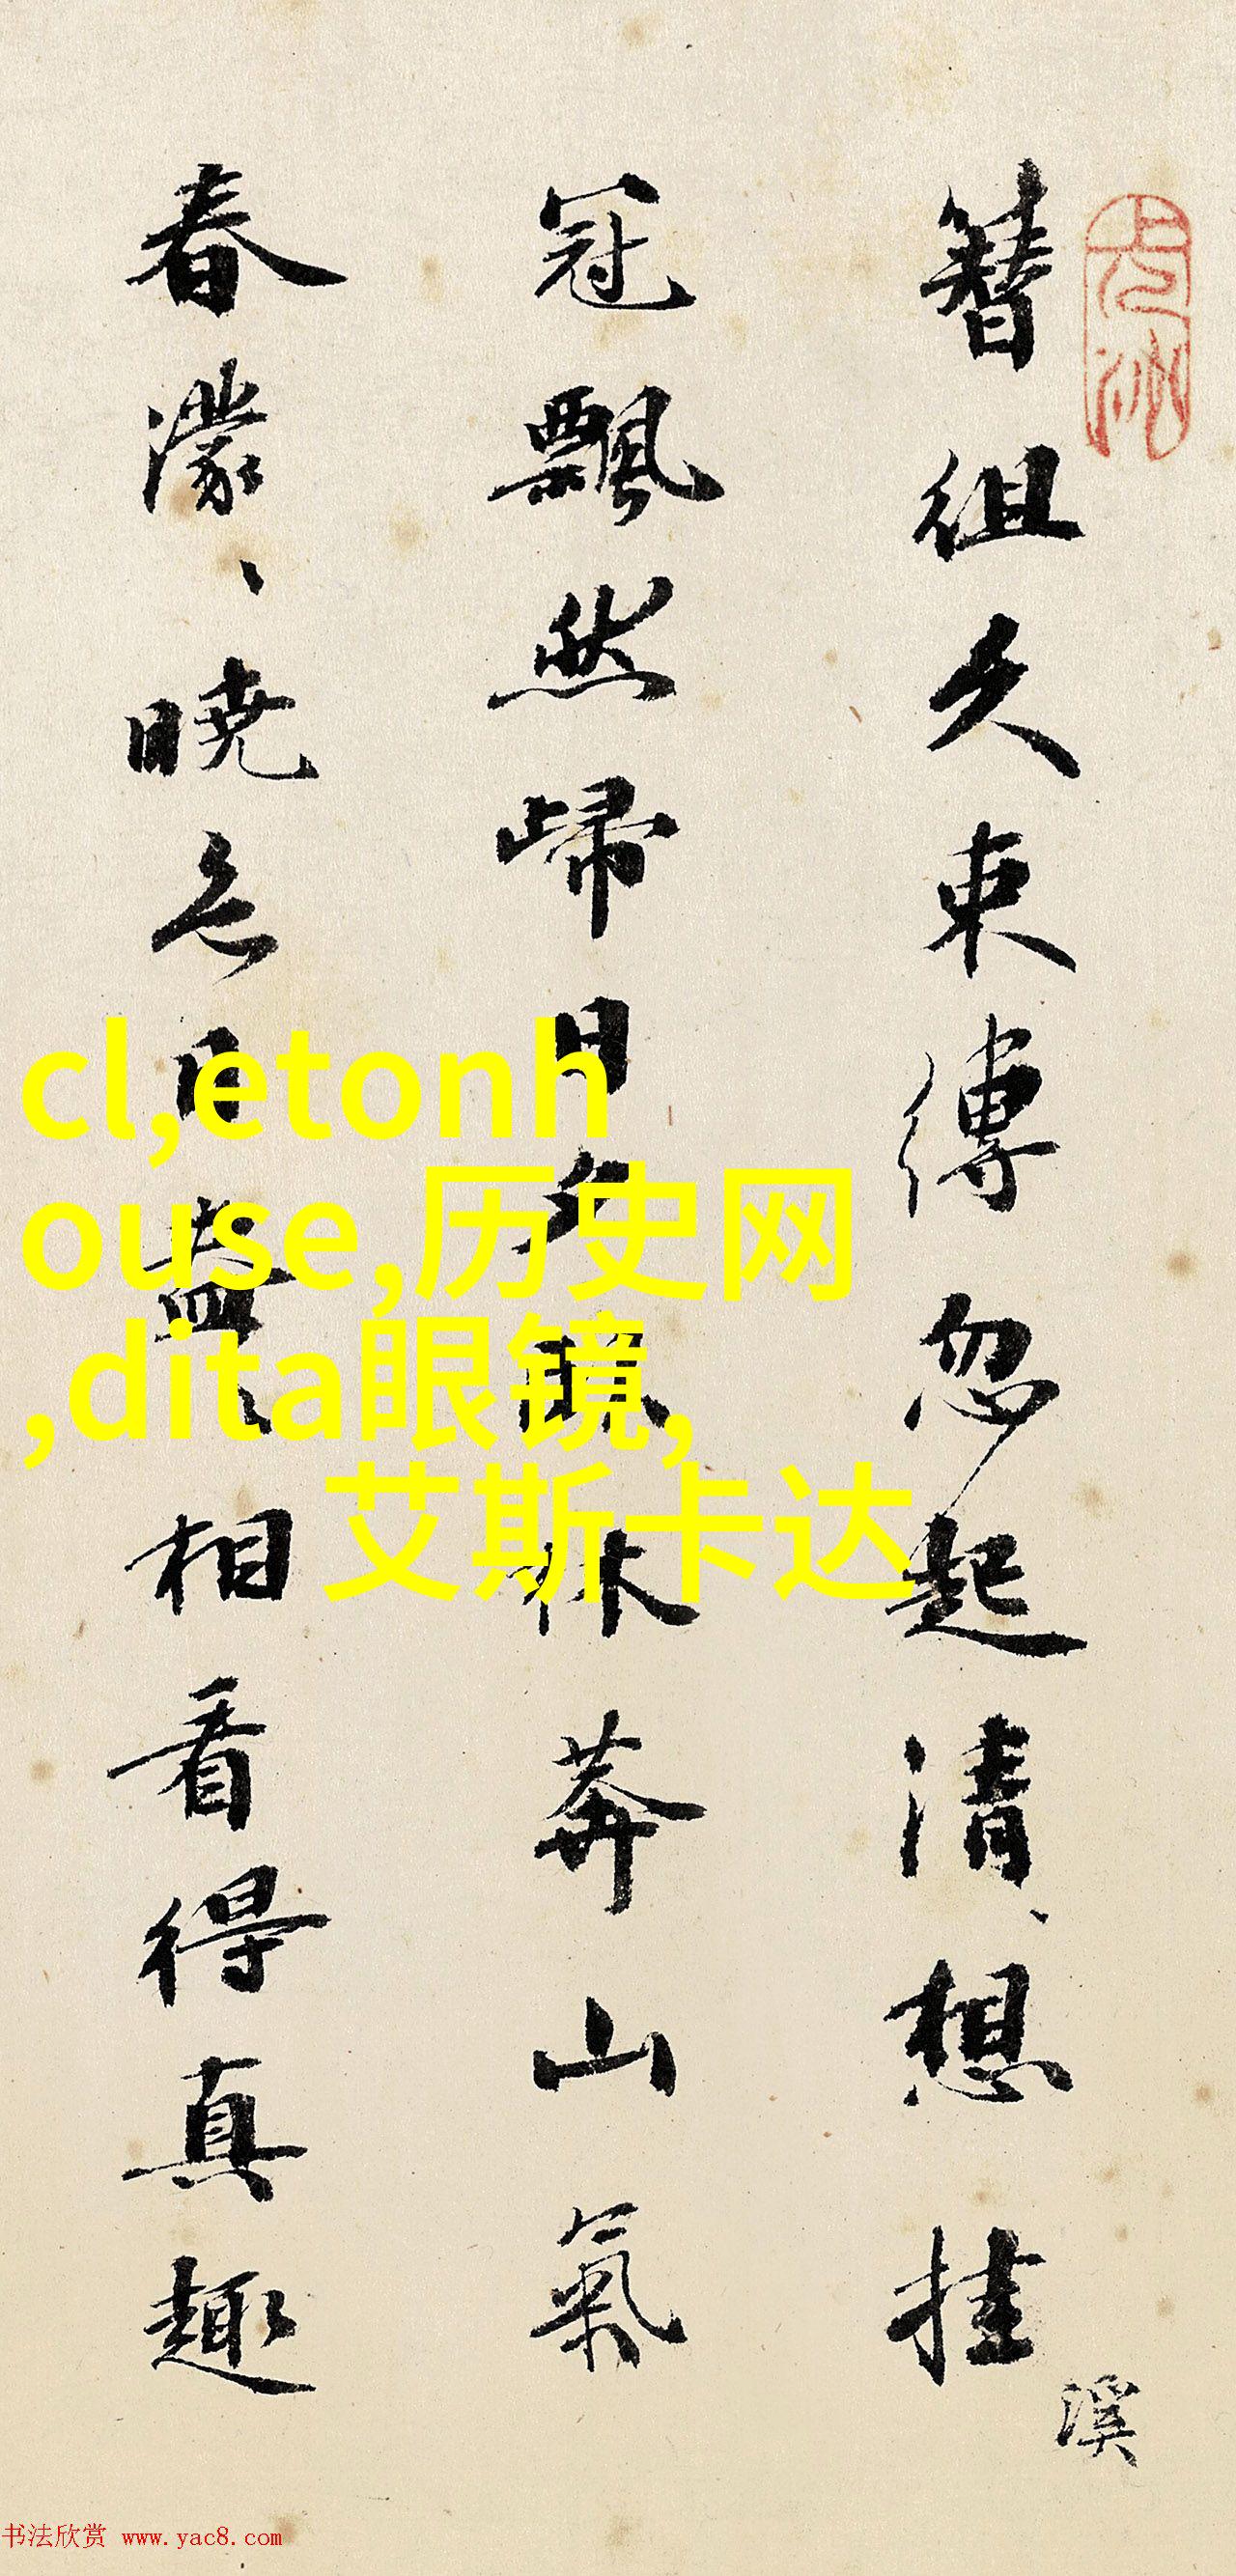 簪組久束縛忽起清、想挂
溪
冠飄然歸日夕 休莽山氣
春濛、曉色日益、相看得真趣
cl,etonh
ouse,历史网
,dita眼镜,
艾斯卡达
书法欣赏 www.yac8.com